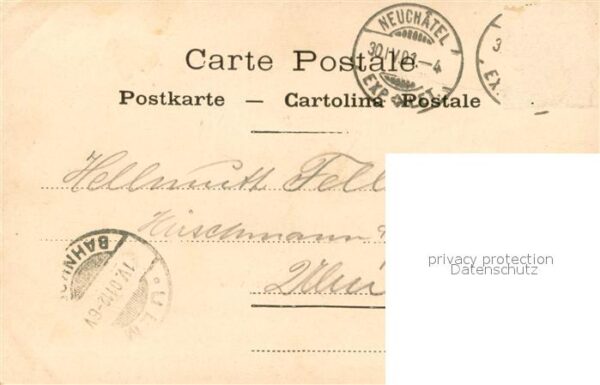 Carte Postale
Postkarte — Cartolina Postale
NEUCHÂTEL
EXP. LET.
EX.
Hellmuth Fell
Hirschmann
Ulm
BAHNH
ULM
privacy protection
Datenschutz